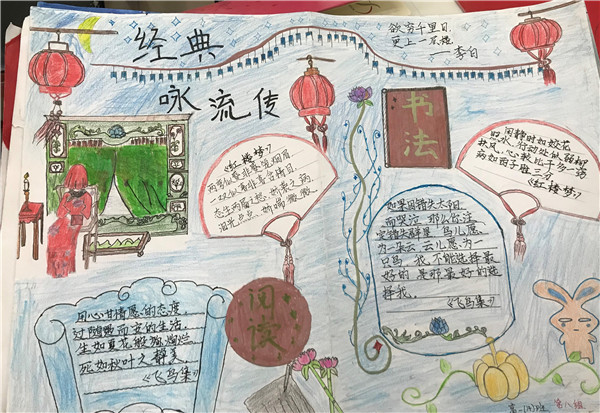 经典
咏流传
欲穷千里目,
更上一层楼
——李白
书法
《红楼梦》
两弯似蹙非蹙罥烟眉,
一双似喜非喜含情目。
态生两靥之愁,娇袭之病。
泪光点点,娇喘微微。
闲静时如姣花
照水,行动处似弱柳
扶风,心较比干多一窍,
病如西子胜三分
《红楼梦》
如果因错失太阳
而哭泣,那么你注
定错失群星 鸟儿愿
为一朵云 云儿愿为一
只鸟 我不能选择最
好的 是那最好的选
择我。
《飞鸟集》
阅读
用心甘情愿的态度,
过随随而安的生活,
生如夏花般绚烂
死如秋叶之静美。
《飞鸟集》
高一(13)班 第八组